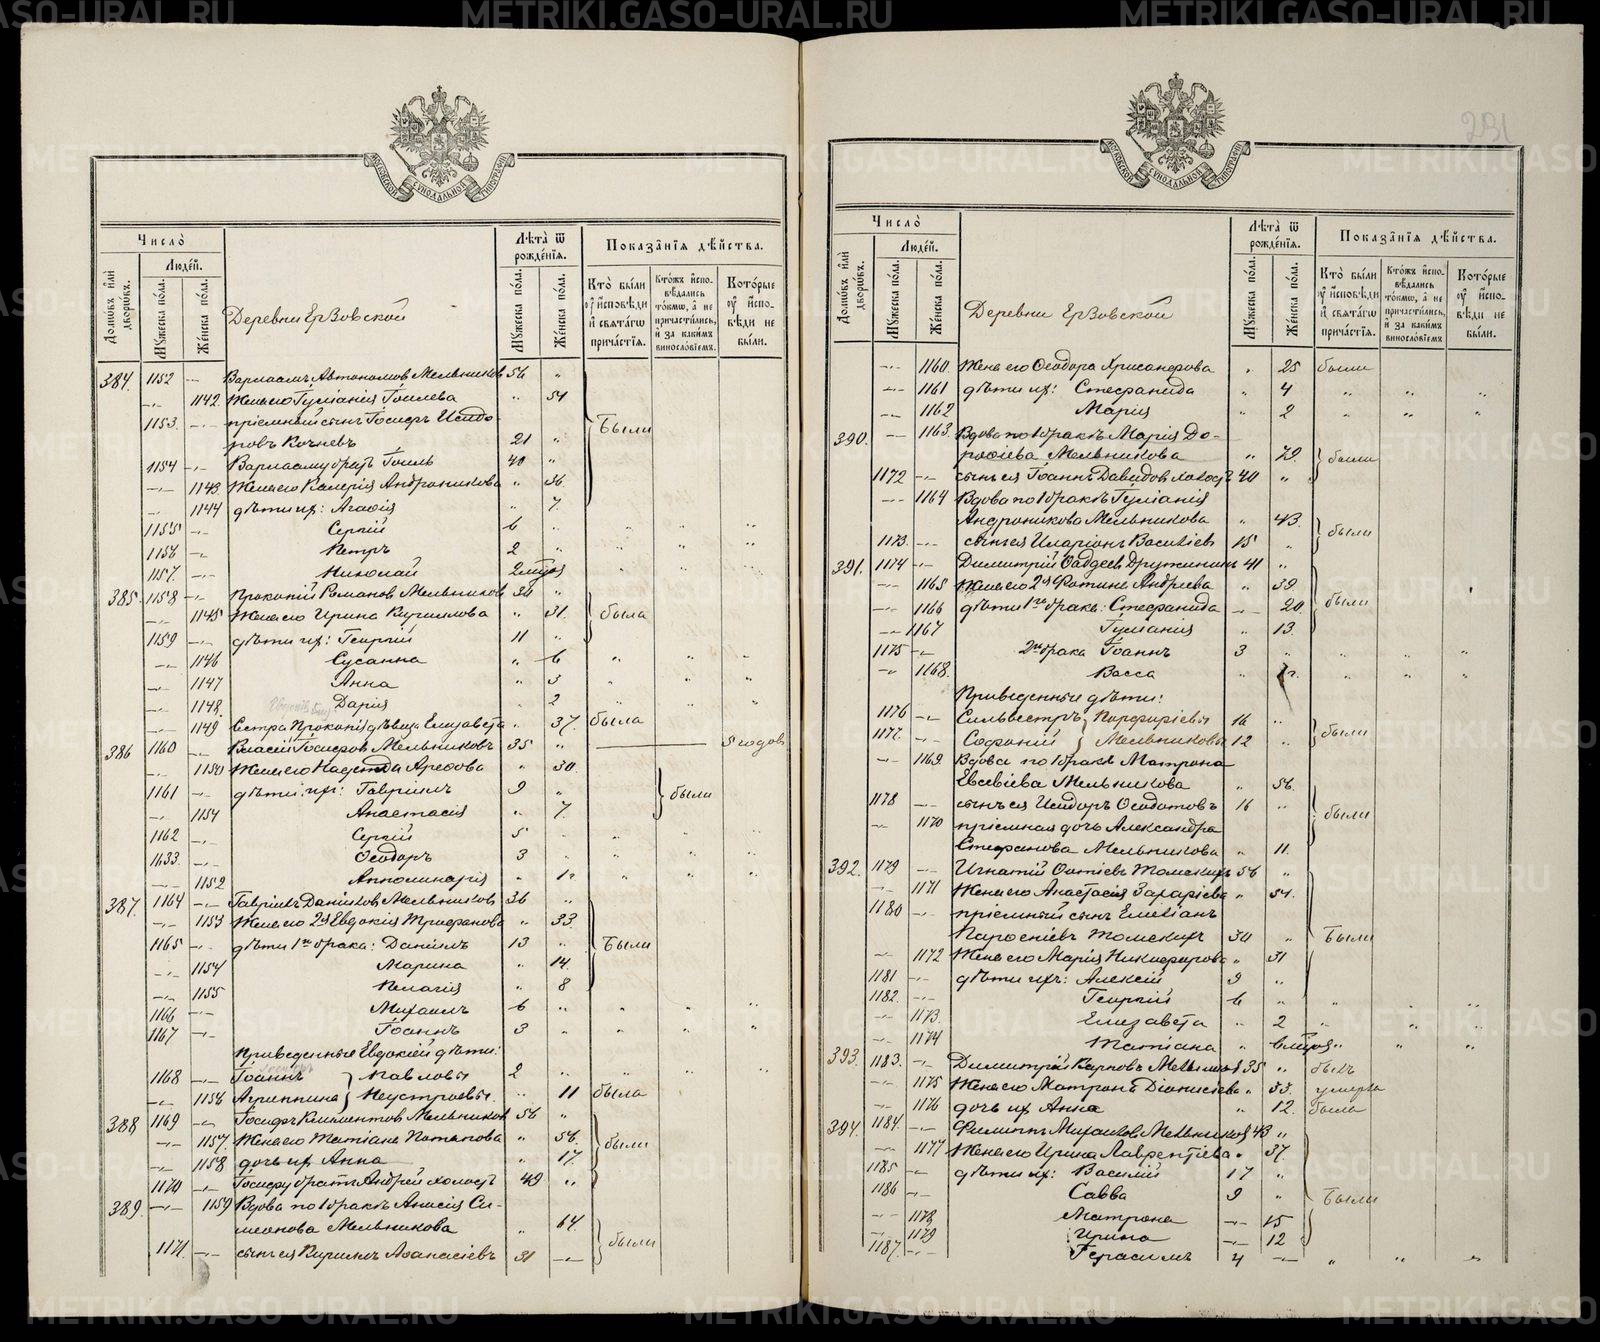 231
МОСКОВСКОЙ СИНОДАЛЬНОЙ ТИПОГРАФИИ
Число̀
Людей.
Домѡвъ и҆лѝ дворѡвъ.
Мꙋжеска по́ла.
Же́нска по́ла.
Деревни Ерзовской
Лѣта̀ ѿ рожде́нїѧ.
Мꙋжеска по́ла.
Же́нска по́ла.
Показа̑нїѧ дѣ́йства.
Кто̀ бы́ли ᲂу҆ и҆сповѣди и҆ свѧта́гѡ прича́стїѧ.
Кто́жъ и҆спо-вѣдались то́кмѡ, а҆ не причасти́лись, и҆ за каки́мъ винослѡ́вїемъ.
Кото́рые ᲂу҆ и҆спо-вѣди не бы́ли.
384. 1152 -"- Варлаамъ Автономовъ Мельниковъ 56 "
-"- 1142. Жена его Іуліанія Іоилева " 54
1153. -"- пріемный сынъ Іосифъ Исидо-
ровъ Кочневъ 21 " Были
1154 -"- Варлааму братъ Іоиль 40 "
-"- 1143. Жена его Валерія Андроникова " 36
-"- 1144 дѣти их: Агафія " 7.
1155 -"- Сергій 6 " " " "
1156 -"- Петръ 2 " " " "
1157. -"- Николай 2 мѣсяц
385. 1158 -"- Прокопій Романовъ Мельниковъ 30 "
-"- 1145 Жена его Ирина Кириллова " 31. была
1159 -"- дѣти их: Георгій 11 "
-"- 1146 Сусанна " 6 " " "
-"- 1147 Анна " 3 " " "
-"- 1148. Дарія " 2 " " "
-"- 1149 Сестра Прокопія дѣвица Елизавета " 37. была
386 1160 -"- Власій Іосифовъ Мельниковъ 35 " 5 годовъ
-"- 1150 Жена его Надежда Арефова " 30.
1161 -"- дѣти их: Гавріилъ 9 " были
-"- 1151 Анастасія " 7.
1162 -"- Сергій 5 " " " "
1633. -"- Ѳеодоръ 3 " " " "
-"- 1152 Апполинарія " 1г. " " "
387. 1164 -"- Гавріилъ Даніиловъ Мельниковъ 36 "
-"- 1153 Жена его 2я Евдокія Трифанова " 33.
1165 -"- дѣти 1го брака: Даніилъ 13 " Были
-"- 1154 Марина " 14.
-"- 1155 Пелагія " 8
1166 -"- Михаилъ 6 " " " "
1167 -"- Іоаннъ 3 " " " "
Приведенные Евдокіей дѣти:
1168 -"- Іоаннъ } Павловы 2 " " " "
-"- 1156 Агриппина } Неустроевы. " 11 была
388 1169 -"- Іосифъ Климентовъ Мельниковъ 56 "
-"- 1157. Жена его Татіана Потапова " 56. были
-"- 1158 дочь их Анна " 17.
1170 -"- Іосифу братъ Андрей холостъ 49 "
389. -"- 1159 Вдова по 1 бракѣ Анисія Си-
меонова Мельникова " 64.
1171. -"- сынъ ея Кириллъ Аѳанасіевъ 31 -"- были
Число̀
Людей.
Домѡвъ и҆лѝ дворѡвъ.
Мꙋжеска по́ла.
Же́нска по́ла.
Деревни Ерзовской
Лѣта̀ ѿ рожде́нїѧ.
Мꙋжеска по́ла.
Же́нска по́ла.
Показа̑нїѧ дѣ́йства.
Кто̀ бы́ли ᲂу҆ и҆сповѣди и҆ свѧта́гѡ прича́стїѧ.
Кто́жъ и҆спо-вѣдались то́кмѡ, а҆ не причасти́лись, и҆ за каки́мъ винослѡ́вїемъ.
Кото́рые ᲂу҆ и҆спо-вѣди не бы́ли.
-"- 1160. Жена его Ѳеодора Хрисанфова " 25 были
-"- 1161 дѣти их: Стефанида " 4 " " "
-"- 1162 Марія " 2 " " "
390. -"- 1163. Вдова по 1 бракѣ Марія До-
рофіева Мельникова " 72. были
1172 -"- сынъ ея Іоаннъ Давидовъ холостъ 40 "
-"- 1164 Вдова по 1 бракѣ Іуліанія
Андроникова Мельникова " 43. были
1173. -"- сынъ ея Иларіонъ Васильевъ 15 "
391. 1174 -"- Димитрій Фаддеевъ Дружининъ 41 "
-"- 1165 Жена его 2я Фотина Андреева " 39.
-"- 1166 дѣти 1го брака: Стефанида -"- 20 были
-"- 1167 Іуліанія " 13.
1175 -"- 2го брака Іоаннъ 3 " " " "
-"- 1168. Васса " 1г. " " "
Приведенные дѣти:
1176 -"- Сильвестръ } Порфиріевы 16 "
1177. -"- Софоній } Мельниковы 12 " были
-"- 1169 Вдова по 1 бракѣ Матрона
Евсевіева Мельникова " 56.
1178 -"- сынъ ея Исидоръ Ѳеодотовъ 16 " были
-"- 1170 пріемная дочь Александра
Стефанова Мельникова " 11.
392. 1179 -"- Игнатій Фотіевъ Томскихъ 56 "
-"- 1171 Жена его Анастасія Захаріева " 51.
1180 -"- пріемный сынъ Емеліанъ
Парѳеніевъ Томскихъ 30 " Были
-"- 1172 Жена его Марія Никифорова " 31
1181 -"- дѣти ихъ: Алексій 9 "
1182. -"- Георгій 6 " " " "
-"- 1173. Елизавета " 2 " " "
-"- 1174 Татіана " 6 мѣсяц " "
393. 1183. -"- Димитрій Карповъ Мельниковъ 35 " былъ
-"- 1175 Жена его Матрона Діонисіева " 33. умерла
-"- 1176 дочь их Анна " 12. была
394. 1184. -"- Филиппъ Михаиловъ Мельниковъ 43 "
-"- 1177 Жена его Ирина Лаврентіева " 37.
1185 -"- дѣти их: Василій 17 "
1186 -"- Савва 9 " Были
-"- 1178 Матрона -"- 15
-"- 1179 Ирина -"- 12
1187. -"- Герасимъ 4 -"- " " "
METRIKI.GASO-URAL.RU